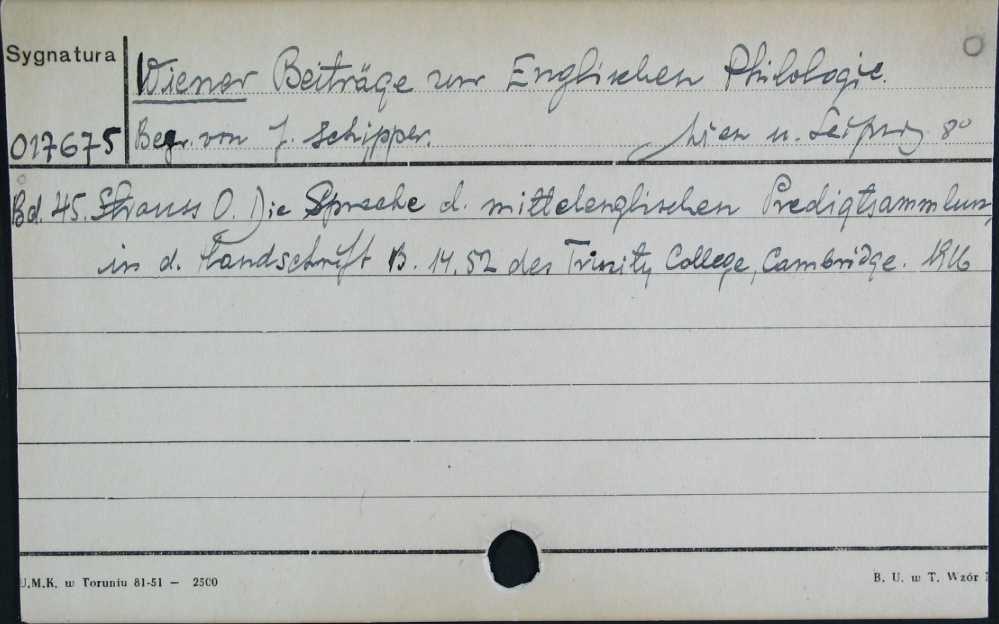 Sygnatura
Wiener Beiträge zur Englischen Philologie.
017675 Begr. von J. Schipper. Wien u. Leipzig 8°
Bd. 45. Strauss O. Die Sprache d. mittelenglischen Predigtsammlung
in d. Handschrift B. 14.52 des Trinity College, Cambridge. 1916
U.M.K. w Toruniu 81-51 — 2500
B. U. w T. Wzór